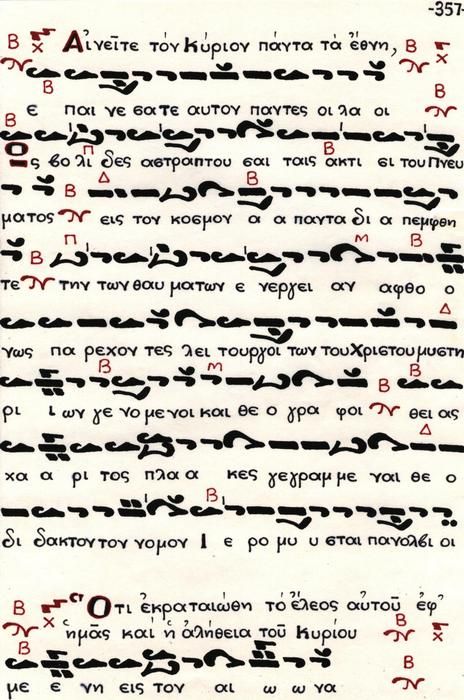 -357-
Αἰνεῖτε τόν Κύριον πάντα τά ἔθνη,
ε παι νε σα τε αυτον παντες οι λα οι
Ος βο λι δες αστραπτου σαι ταις ακτι σι του Πνευ
ματος εις τον κοσμον α α παντα δι α πεμφθη
τε την των θαυ ματων ε νεργει αν αφθο ο
νως πα ρεχον τες λει τουργοι των του Χριστου μυστη
ρι ι ων γε νο με νοι και θε ο γρα φοι θει ας
χα α ρι τος πλα α κες γεγραμ με ναι θε ο
δι δακτον τον νομον Ι ε ρο μυ υ σται πανολβι οι
Ὅτι ἐκραταιώθη τό ἔλεος αὐτοῦ ἐφ᾽
ἡμᾶς καί ἡ ἀλήθεια τοῦ Κυρίου
με ε νη εις τον αι ω ω να